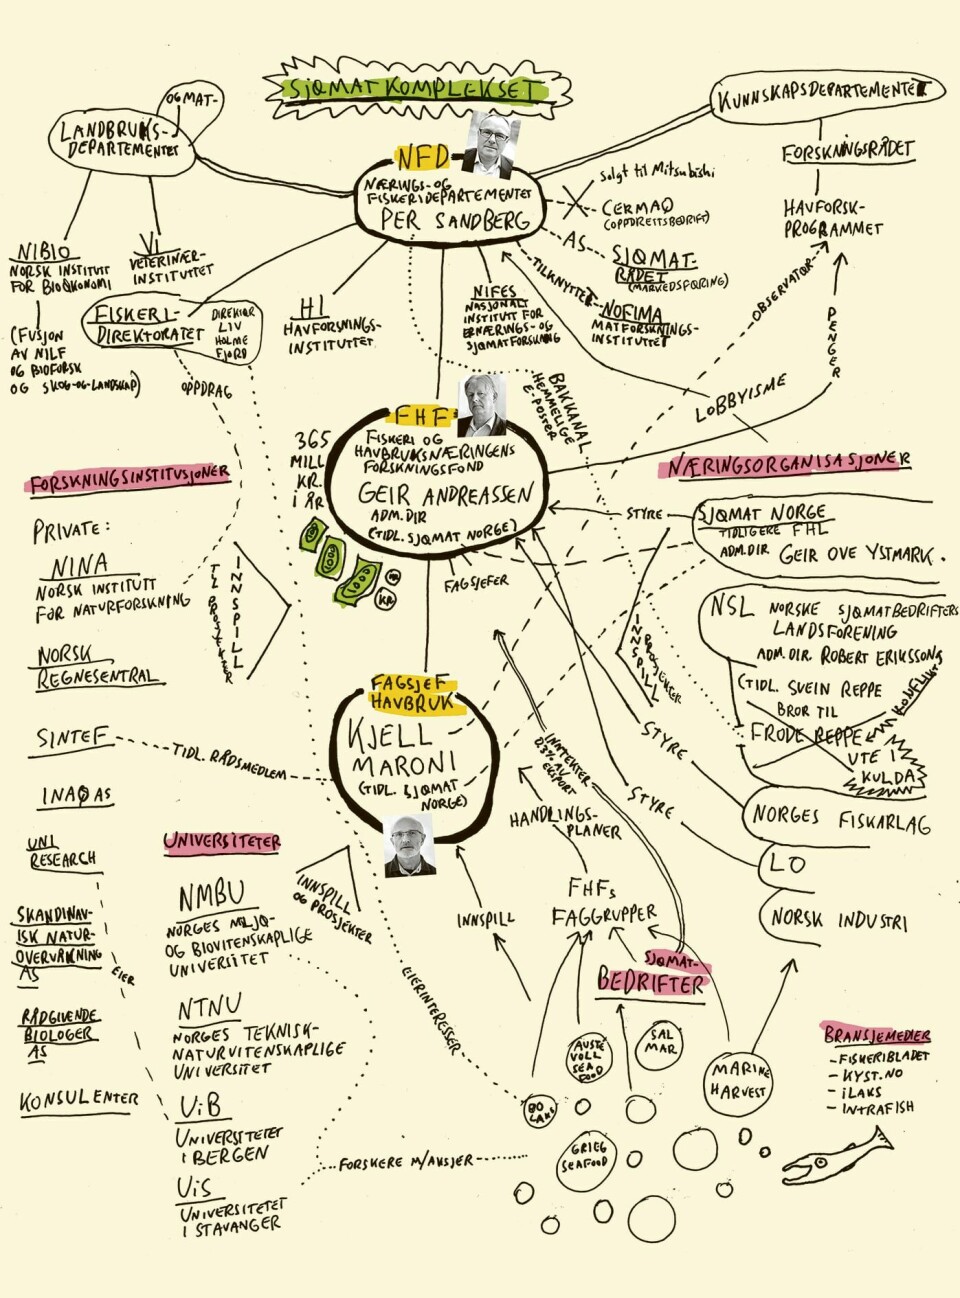 SJØMATKOMPLEKSET
OG MAT-
LANDBRUKS-
DEPARTEMENTET
KUNNSKAPSDEPARTEMENTET
NFD
NÆRINGS- OG
FISKERIDEPARTEMENTET
PER SANDBERG
FORSKNINGSRÅDET
HAVFORSK-
PROGRAMMET
Solgt til Mitsubishi
CERMAQ
(OPPDRETTSBEDRIFT)
AS
SJØMAT-
RÅDET
(MARKEDSFØRING)
TILKNYTTET
NOFIMA
MATFORSKNINGS-
INSTITUTTET
OBSERVATØR
PENGER
NIBIO
NORSK INSTITUTT
FOR BIOØKONOMI
(FUSJON
AV NILF
OG BIOFORSK
OG SKOG-OG-LANDSKAP)
VI
VETERINÆR-
INSTITUTTET
FISKERI-
DIREKTORATET
DIREKTØR
LIV
HOLME
FJORD
OPPDRAG
HI
HAVFORSNINGS-
INSTITUTTET
NIFES
NASJONALT
INSTITUTT FOR
ERNÆRINGS- OG
SJØMATFORSKNING
BAKKANAL
HEMMELIGE
E-POSTER
LOBBYISME
365
MILL
KR.
I ÅR
FHF
FISKERI OG
HAVBRUKSNÆRINGENS
FORSKNINGSFOND
GEIR ANDREASSEN
ADM. DIR
(TIDL. SJØMAT NORGE)
KR
FAGSJEFER
STYRE
NÆRINGSORGANISASJONER
SJØMAT NORGE
TIDLIGERE FHL
ADM. DIR GEIR OVE YSTMARK.
NSL NORSKE SJØMATBEDRIFTERS
LANDSFORENING
ADM. DIR. ROBERT ERIKSSON
(TIDL. SVEIN REPPE
BROR TIL
FRODE REPPE
KONFLIKT
UTE I
KULDA
NORGES FISKARLAG
LO
NORSK INDUSTRI
INNSPILL
PROSJEKTER
STYRE
STYRE
FORSKNINGSINSTITUSJONER
PRIVATE:
NINA
NORSK INSTITUTT
FOR NATURFORSKNING
NORSK
REGNESENTRAL
INNSPILL
TIL PROSJEKTER
SINTEF
TIDL. RÅDSMEDLEM
INAQ AS
UNI
RESEARCH
SKANDINAV-
ISK NATUR-
OVERVÅKNING
AS
EIER
RÅDGIVENDE
BIOLOGER
AS
KONSULENTER
FAGSJEF
HAVBRUK
KJELL
MARONI
(TIDL. SJØMAT
NORGE)
UNIVERSITETER
NMBU
NORGES MILJØ-
OG BIOVITENSKAPLIGE
UNIVERSITET
INNSPILL
OG PROSJEKTER
NTNU
NORGES TEKNISK-
NATURVITENSKAPLIGE
UNIVERSITET
UiB
UNIVERSITETET
I BERGEN
UiS
UNIVERSITETET
I STAVANGER
FORSKERE M/AKSJER
EIERINTERESSER
INNSPILL
HANDLINGS-
PLANER
INNTEKTER
0,3% AV
EKSPORT
FHFs
FAGGRUPPER
SJØMAT-
BEDRIFTER
AUSTE
VOLL
SEA
FOOD
SAL
MAR
MARINE
HARVEST
BO
LAKS
GRIEG
SEAFOOD
BRANSJEMEDIER
- FISKERIBLADET
- KYST.NO
- iLAKS
- INTRAFISH